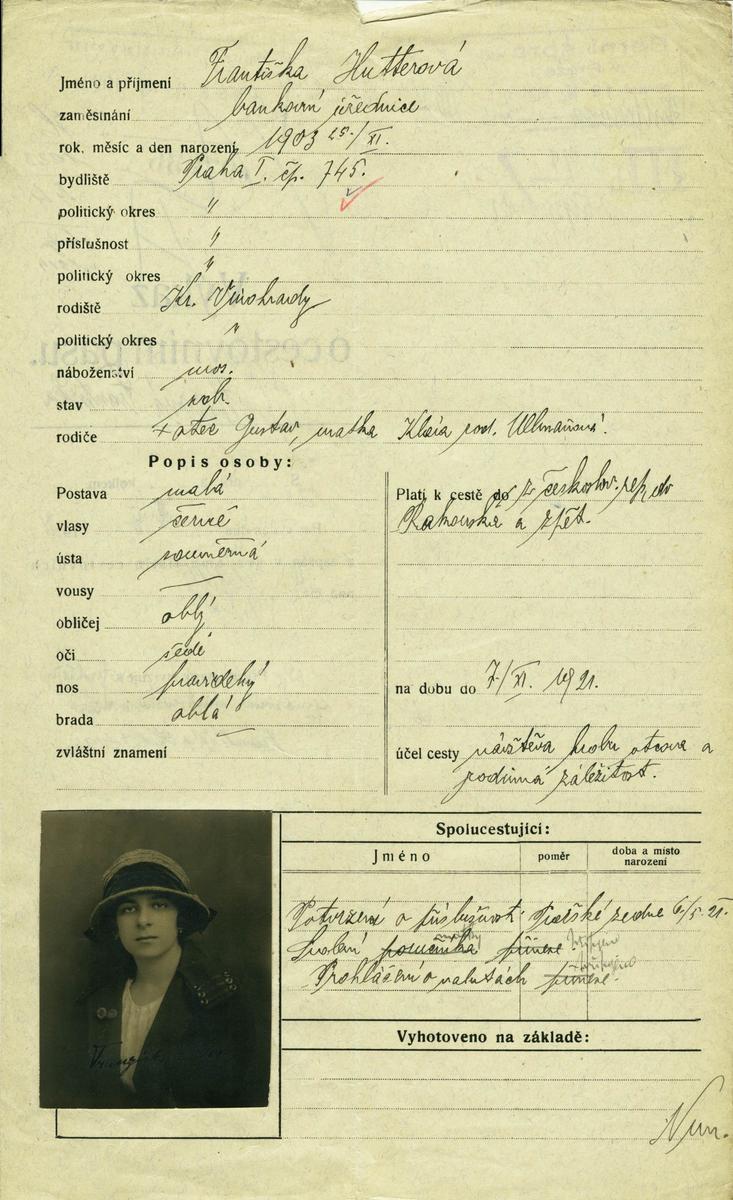 Jméno a příjmení Františka Hutterová
zaměstnání bankovní úřednice
rok, měsíc a den narození 1903 25./XI.
bydliště Praha I. čp. 745.
politický okres "
příslušnost "
politický okres "
rodiště Kr. Vinohrady
politický okres "
náboženství mos.
stav svob.
rodiče + otec Gustav, matka Klára roz. Ullmanová.
Popis osoby:
Postava malá
vlasy černé
ústa souměrná
vousy —
obličej oblý
oči šedé
nos pravidelný
brada oblá
zvláštní znamení —
Platí k cestě do z českoslov. rep. do
Rakouska a zpět.
na dobu do 7/XI. 1921.
účel cesty návštěva hrobu otcova a
rodinná záležitost.
Spolucestující:
Jméno poměr doba a místo narození
Potvrzení o příslušnosti Pražské ze dne 6/5. 21.
Svolení poručníka přinese
Prohlášení o valutách přinese.
Vyhotoveno na základě: